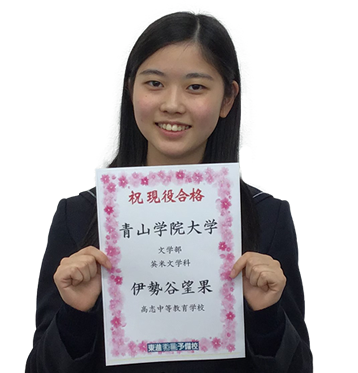 祝 現役合格
青山学院大学
文学部
英米文学科
伊勢谷望果
高志中等教育学校
東進衛星予備校